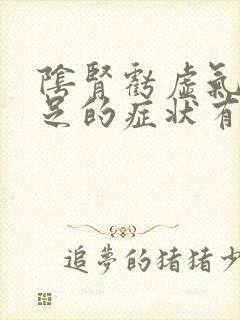 陰腎虧虛氣
足的症狀有
追夢的猪猪少